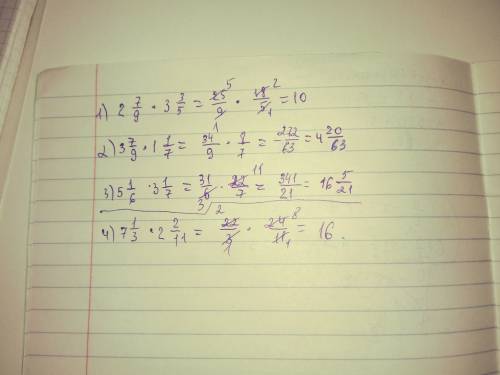 1) 2 7/9 · 3 3/5 = 25 5/9 1 · 18 2/5 1 = 10
2) 3 7/9 · 1 1/7 = 34/9 · 8/7 = 272/63 = 4 20/63
3) 5 1/6 · 3 1/7 = 31/6 3 · 22 11/7 = 341/21 = 16 5/21
4) 7 1/3 · 2 2/11 = 22 2/3 1 · 24 8/11 1 = 16.